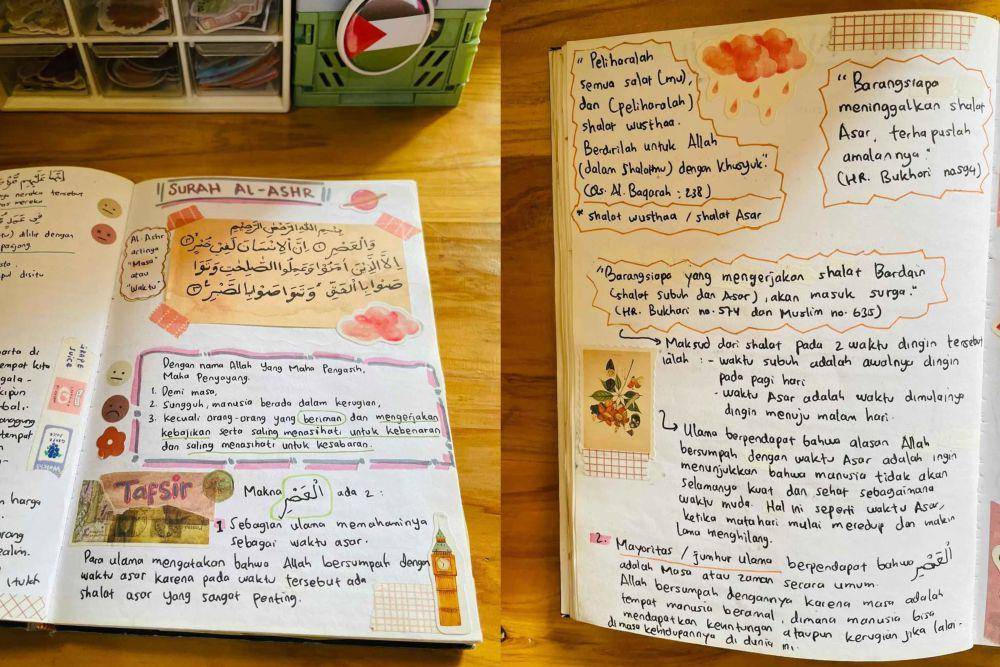 SURAH AL-ASHR
Al Ashr
artinya
"Masa"
atau
"Waktu"
بِسْمِ اللهِ الرَّحْمٰنِ الرَّحِيْمِ
وَالْعَصْرِ ① اِنَّ الْاِنْسَانَ لَفِيْ خُسْرٍ ②
اِلَّا الَّذِيْنَ اٰمَنُوْا وَعَمِلُوا الصّٰلِحٰتِ وَتَوَا
صَوْا بِالْحَقِّ وَتَوَاصَوْا بِالصَّبْرِ ③
Dengan nama Allah Yang Maha Pengasih,
Maha Penyayang.
1. Demi masa,
2. Sungguh, manusia berada dalam kerugian,
3. Kecuali orang-orang yang beriman dan mengerjakan
kebajikan serta saling menasihati untuk kebenaran
dan saling menasihati untuk kesabaran.
Tafsir
Makna الْعَصْرِ ada 2 :
1 Sebagian ulama memahaminya
sebagai waktu asar.
Para ulama mengatakan bahwa Allah bersumpah dengan
waktu asar karena pada waktu tersebut ada
shalat asar yang sangat penting.
"Peliharalah
semua salat (mu),
dan (peliharalah)
shalat wusthaa.
Berdirilah untuk Allah
(dalam shalatmu) dengan khusyuk".
(Qs. Al. Baqarah : 238)
* shalat wusthaa / shalat Asar
"Barangsiapa
meninggalkan shalat
Asar, terhapuslah
amalannya."
(HR. Bukhori no.594)
"Barangsiapa yang mengerjakan shalat Bardain
(shalat Subuh dan Asar), akan masuk surga."
(HR. Bukhari no. 574 dan Muslim no. 635)
Maksud dari shalat pada 2 waktu dingin tersebut
ialah : - waktu subuh adalah awalnya dingin
pada pagi hari
- waktu Asar adalah waktu dimulainya
dingin menuju malam hari.
Ulama berpendapat bahwa alasan Allah
bersumpah dengan waktu Asar adalah ingin
menunjukkan bahwa manusia tidak akan
selamanya kuat dan sehat sebagaimana
waktu muda. Hal ini seperti waktu Asar,
ketika matahari mulai meredup dan makin
lama menghilang.
2. Mayoritas / jumhur ulama berpendapat bahwa الْعَصْرِ
adalah Masa atau zaman secara umum.
Allah bersumpah dengannya karena masa adalah
tempat manusia beramal, dimana manusia bisa
mendapatkan keuntungan ataupun kerugian jika lalai.
dimasa kehidupannya di dunia ini.